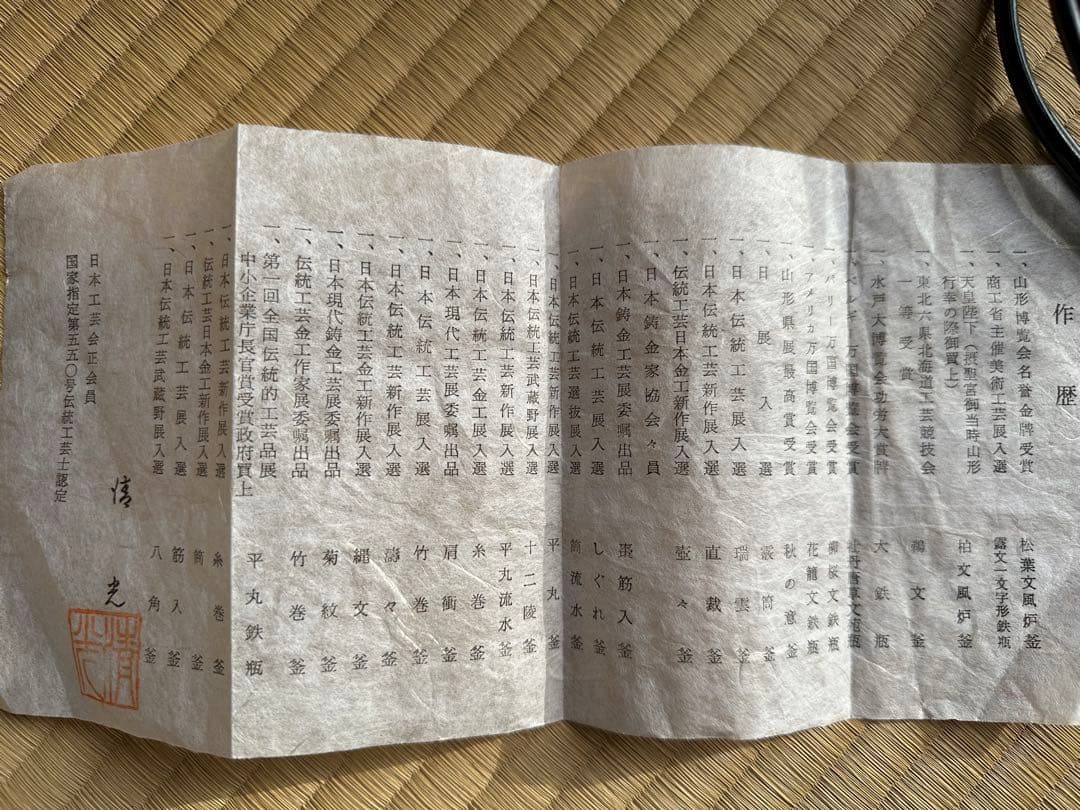 作歴
一、山形博覧会名誉金牌受賞 松葉文風炉釜
一、商工省主催美術工芸展入選 露文一文字形鉄瓶
天皇陛下(摂聖宮御当時山形
行幸の際御買上) 柏文風炉釜
一、東北六県北海道工芸競技会
一等受賞 鶴文釜
一、水戸大博覧会功労大賞牌 大鉄瓶
一、ベルギー万国博覧会受賞 牡丹唐草文鉄瓶
一、パリー万国博覧会受賞 柳桜文鉄瓶
一、アメリカ万国博覧会受賞 花籠文鉄瓶
一、山形県展最高賞受賞 秋の意釜
一、日展入選 筒釜
一、日本伝統工芸展入選 瑞雲釜
一、日本伝統工芸展入選 直裁釜
一、伝統工芸日本金工新作展入選 壺々釜
一、日本鋳金家協会々員
一、日本鋳金工芸展委嘱出品 棗筋入釜
一、日本伝統工芸展入選 しぐれ釜
一、日本伝統工芸選抜展入選 筒流水釜
一、日本伝統工芸展入選 平丸釜
一、日本伝統工芸武蔵野展入選 十二陵釜
一、日本伝統工芸新作展入選 平丸流水釜
一、日本伝統工芸金工展入選 糸巻釜
一、日本現代工芸展委嘱出品 肩衝釜
一、日本伝統工芸展入選 竹巻釜
一、日本伝統工芸新作展入選 濤々釜
一、日本伝統工芸金工新作展入選 縄文釜
一、日本現代鋳金工芸展委嘱出品 菊紋釜
一、伝統工芸金工作家展委嘱出品 竹巻釜
一、第一回全国伝統的工芸品展
中小企業庁長官賞受賞政府買上 平丸鉄瓶
一、日本伝統工芸新作展入選 糸巻釜
一、伝統工芸日本金工新作展入選 筒釜
一、日本伝統工芸展入選 筋入釜
一、日本伝統工芸武蔵野展入選 八角釜
清光
日本工芸会正会員
国家指定第五五〇号伝統工芸士認定
清光